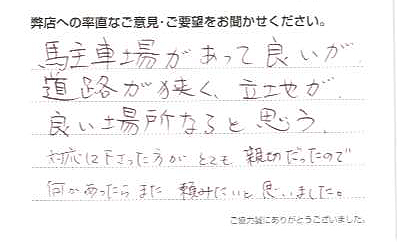 弊店への率直なご意見・ご要望をお聞かせください。
馬主車場があって良いが、
道路が狭く、立地が
良い場所なると思う。
対応して下さった方がとても親切だったので
何かあったらまた頼みたいと思いました。
ご協力誠にありがとうございました。